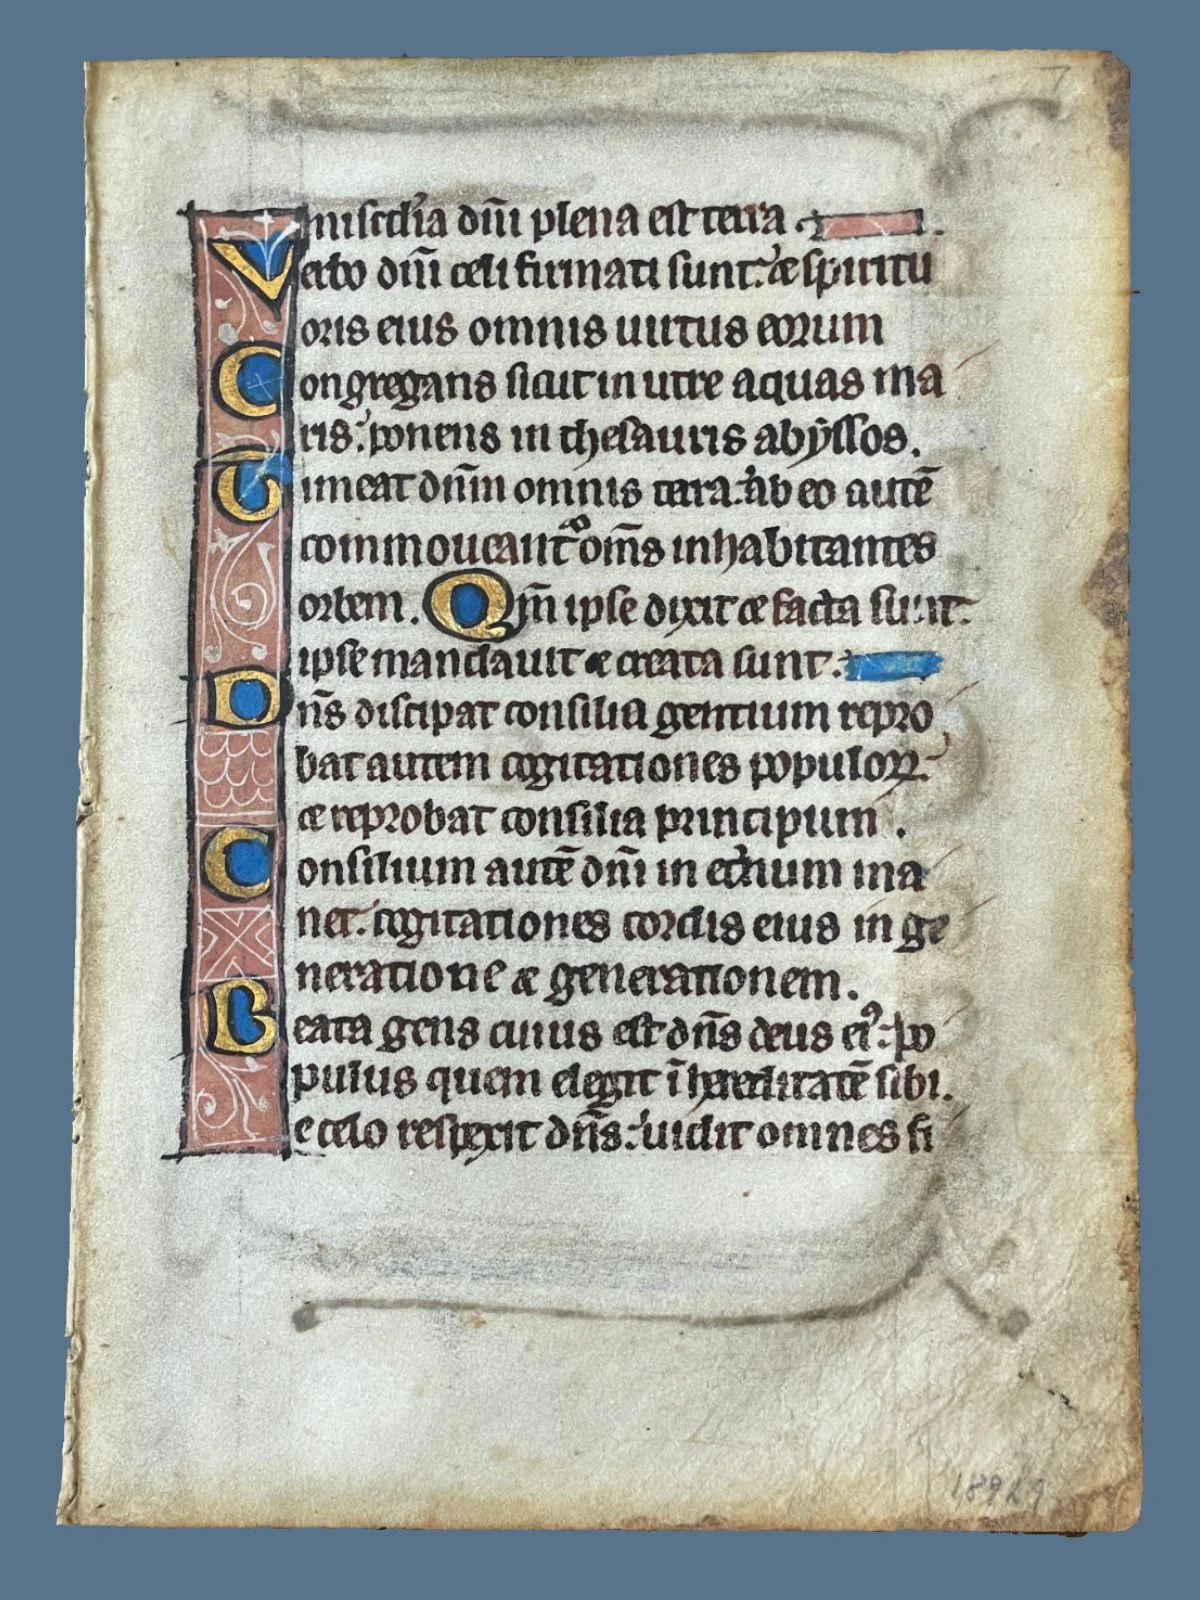 misc̄dia dn̄i plena est terra.
Verbo dn̄i celi firmati sunt: et spiritu
oris eius omnis uirtus eorum
Congregans sicut in utre aquas ma
ris: ponens in thesauris abyssos.
Timeat dn̄m omnis terra: ab eo autē
commoueantᷣ om̄s inhabitantes
orbem. Qm̄ ipse dixit et facta sunt:
ipse mandauit et creata sunt:
Dn̄s discipat consilia gentium repro
bat autem cogitationes populoꝝ:
et reprobat consilia principum.
Consilium autē dn̄i in et̄num ma
net: cogitationes cordis eius in ge
neratione et generationem.
Beata gens cuius est dn̄s deus eiꝰ: po
pulus quem elegit ī hereditatē sibi.
e celo respexit dn̄s: uidit omnes fi